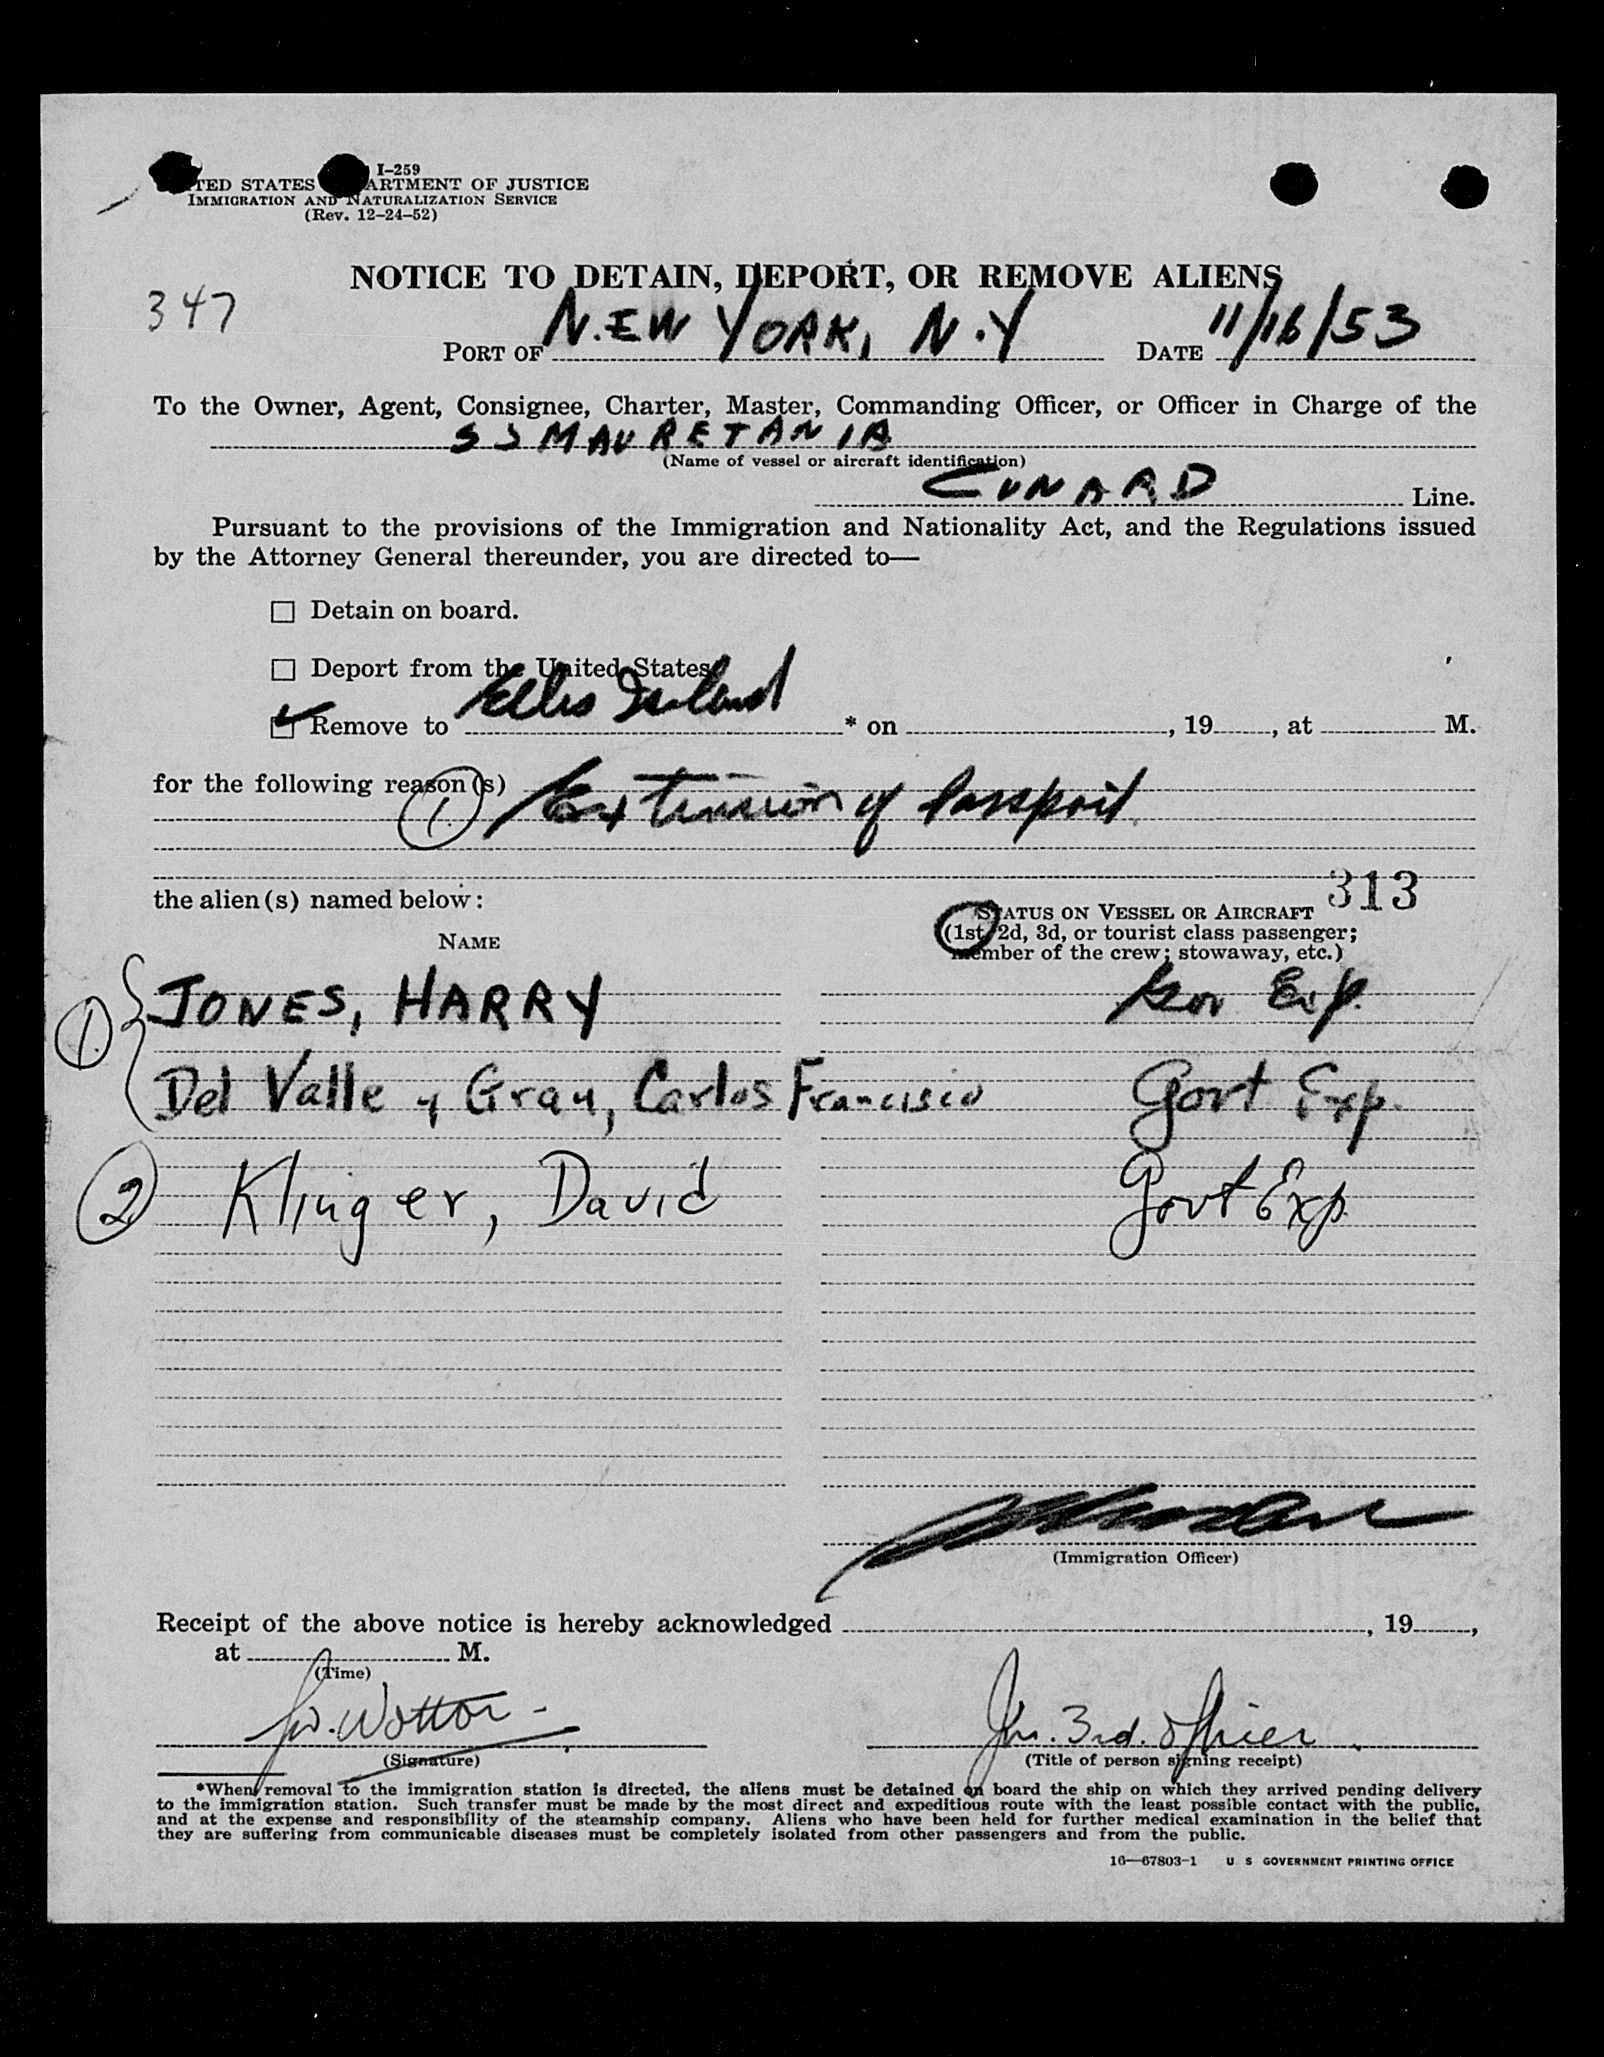 I-259
TED STATES ARTMENT OF JUSTICE
IMMIGRATION AND NATURALIZATION SERVICE
(Rev. 12-24-52)
NOTICE TO DETAIN, DEPORT, OR REMOVE ALIENS
347
PORT OF NEW YORK, N.Y DATE 11/16/53
To the Owner, Agent, Consignee, Charter, Master, Commanding Officer, or Officer in Charge of the
SS MAURETANIA
(Name of vessel or aircraft identification)
CUNARD Line.
Pursuant to the provisions of the Immigration and Nationality Act, and the Regulations issued
by the Attorney General thereunder, you are directed to—
☐ Detain on board.
☐ Deport from the United States
☑ Remove to Ellis Island * on , 19 , at M.
for the following reason(s)
1. Extension of Passport
the alien(s) named below: 313
STATUS ON VESSEL OR AIRCRAFT
NAME (1st, 2d, 3d, or tourist class passenger;
member of the crew; stowaway, etc.)
1. JONES, HARRY Gov Exp.
Del Valle y Grau, Carlos Francisco Govt Exp.
2 Klinger, David Govt Exp
(Immigration Officer)
Receipt of the above notice is hereby acknowledged , 19 ,
at M.
(Time)
Wotton Jnr. 3rd. Officer.
(Signature) (Title of person signing receipt)
*When removal to the immigration station is directed, the aliens must be detained on board the ship on which they arrived pending delivery
to the immigration station. Such transfer must be made by the most direct and expeditious route with the least possible contact with the public,
and at the expense and responsibility of the steamship company. Aliens who have been held for further medical examination in the belief that
they are suffering from communicable diseases must be completely isolated from other passengers and from the public.
16—67803-1 U S GOVERNMENT PRINTING OFFICE